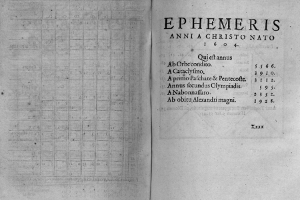 EPHEMERIS
ANNI A CHRISTO NATO
1604.
Qui est annus
Ab Orbe condito.
A Cataclysmo,
A primo Paschate & Pentecoste.
Annus secundus Olympiadis
A Nabonassaro.
Ab obitu Alexandri magni.